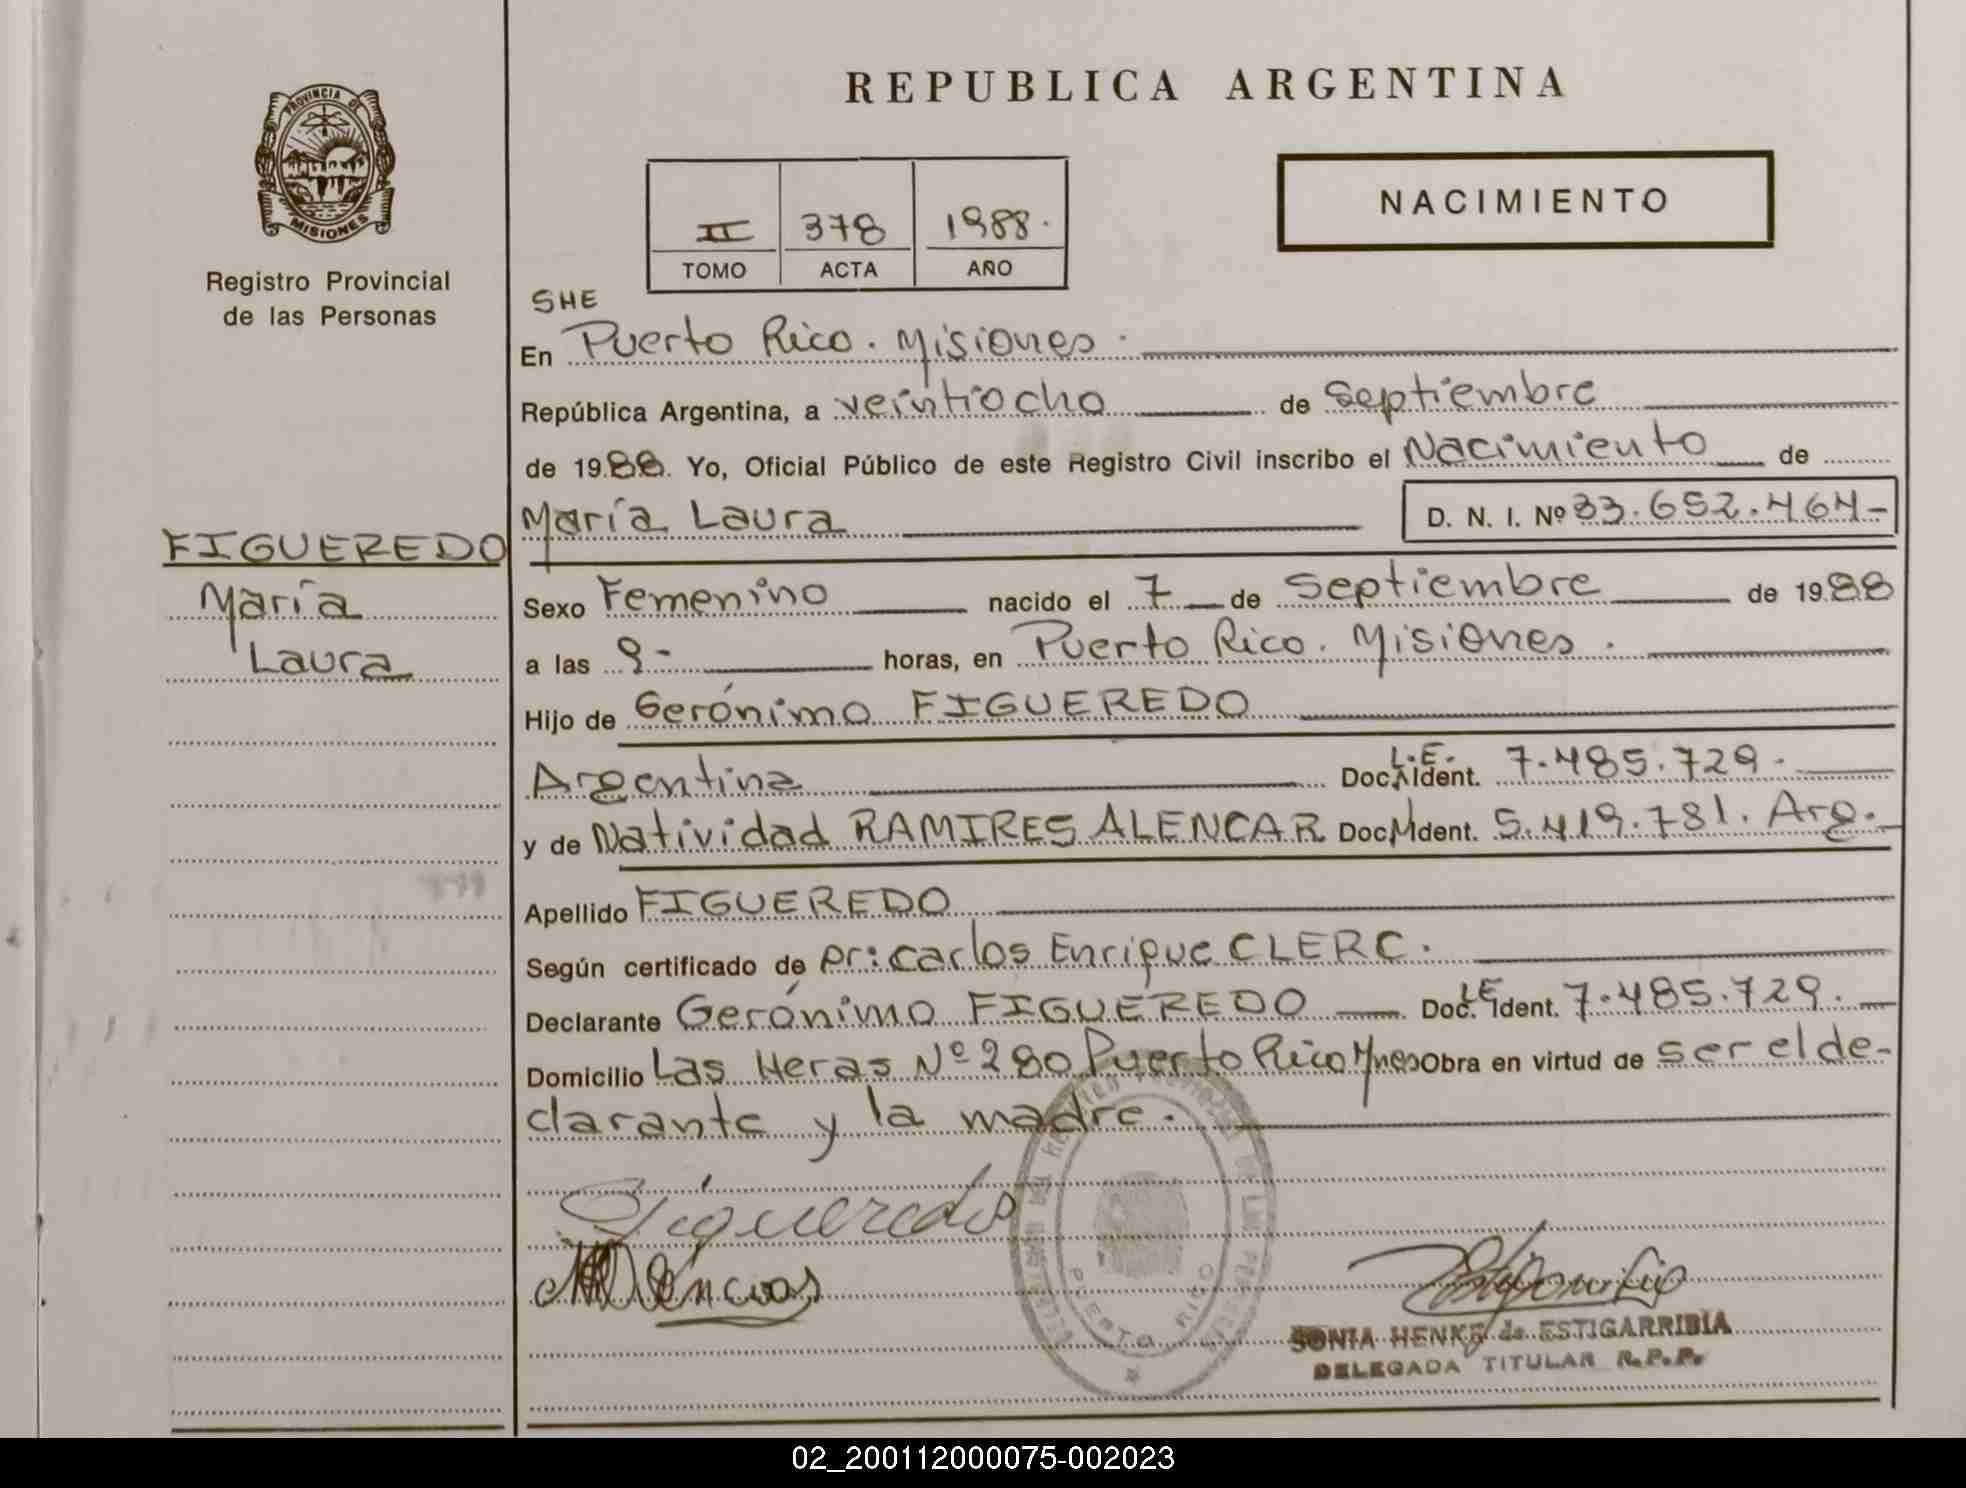 REPUBLICA ARGENTINA
PROVINCIA DE
MISIONES
Registro Provincial
de las Personas
NACIMIENTO
II 378 1988.
TOMO ACTA AÑO
SHE
En Puerto Rico. Misiones.
República Argentina, a veintiocho de Septiembre
de 1988. Yo, Oficial Público de este Registro Civil inscribo el Nacimiento de
María Laura D. N. I. Nº 33.652.464-
FIGUEREDO
María
Laura
Sexo Femenino nacido el 7 de Septiembre de 1988
a las 9- horas, en Puerto Rico. Misiones.
Hijo de Gerónimo FIGUEREDO
Argentina Doc. L.E. Ident. 7.485.729.
y de Natividad RAMIRES ALENCAR Doc. Ident. 5.419.781. Arg.
Apellido FIGUEREDO
Según certificado de Dr: Carlos Enrique CLERC.
Declarante Gerónimo FIGUEREDO Doc. LE Ident. 7.485.729.
Domicilio Las Heras Nº 280 Puerto Rico Mnes Obra en virtud de ser el de-
clarante y la madre.
Figueredo
PUERTO RICO
SONIA HENKE de ESTIGARRIBIA
DELEGADA TITULAR R.P.P.
02_200112000075-002023